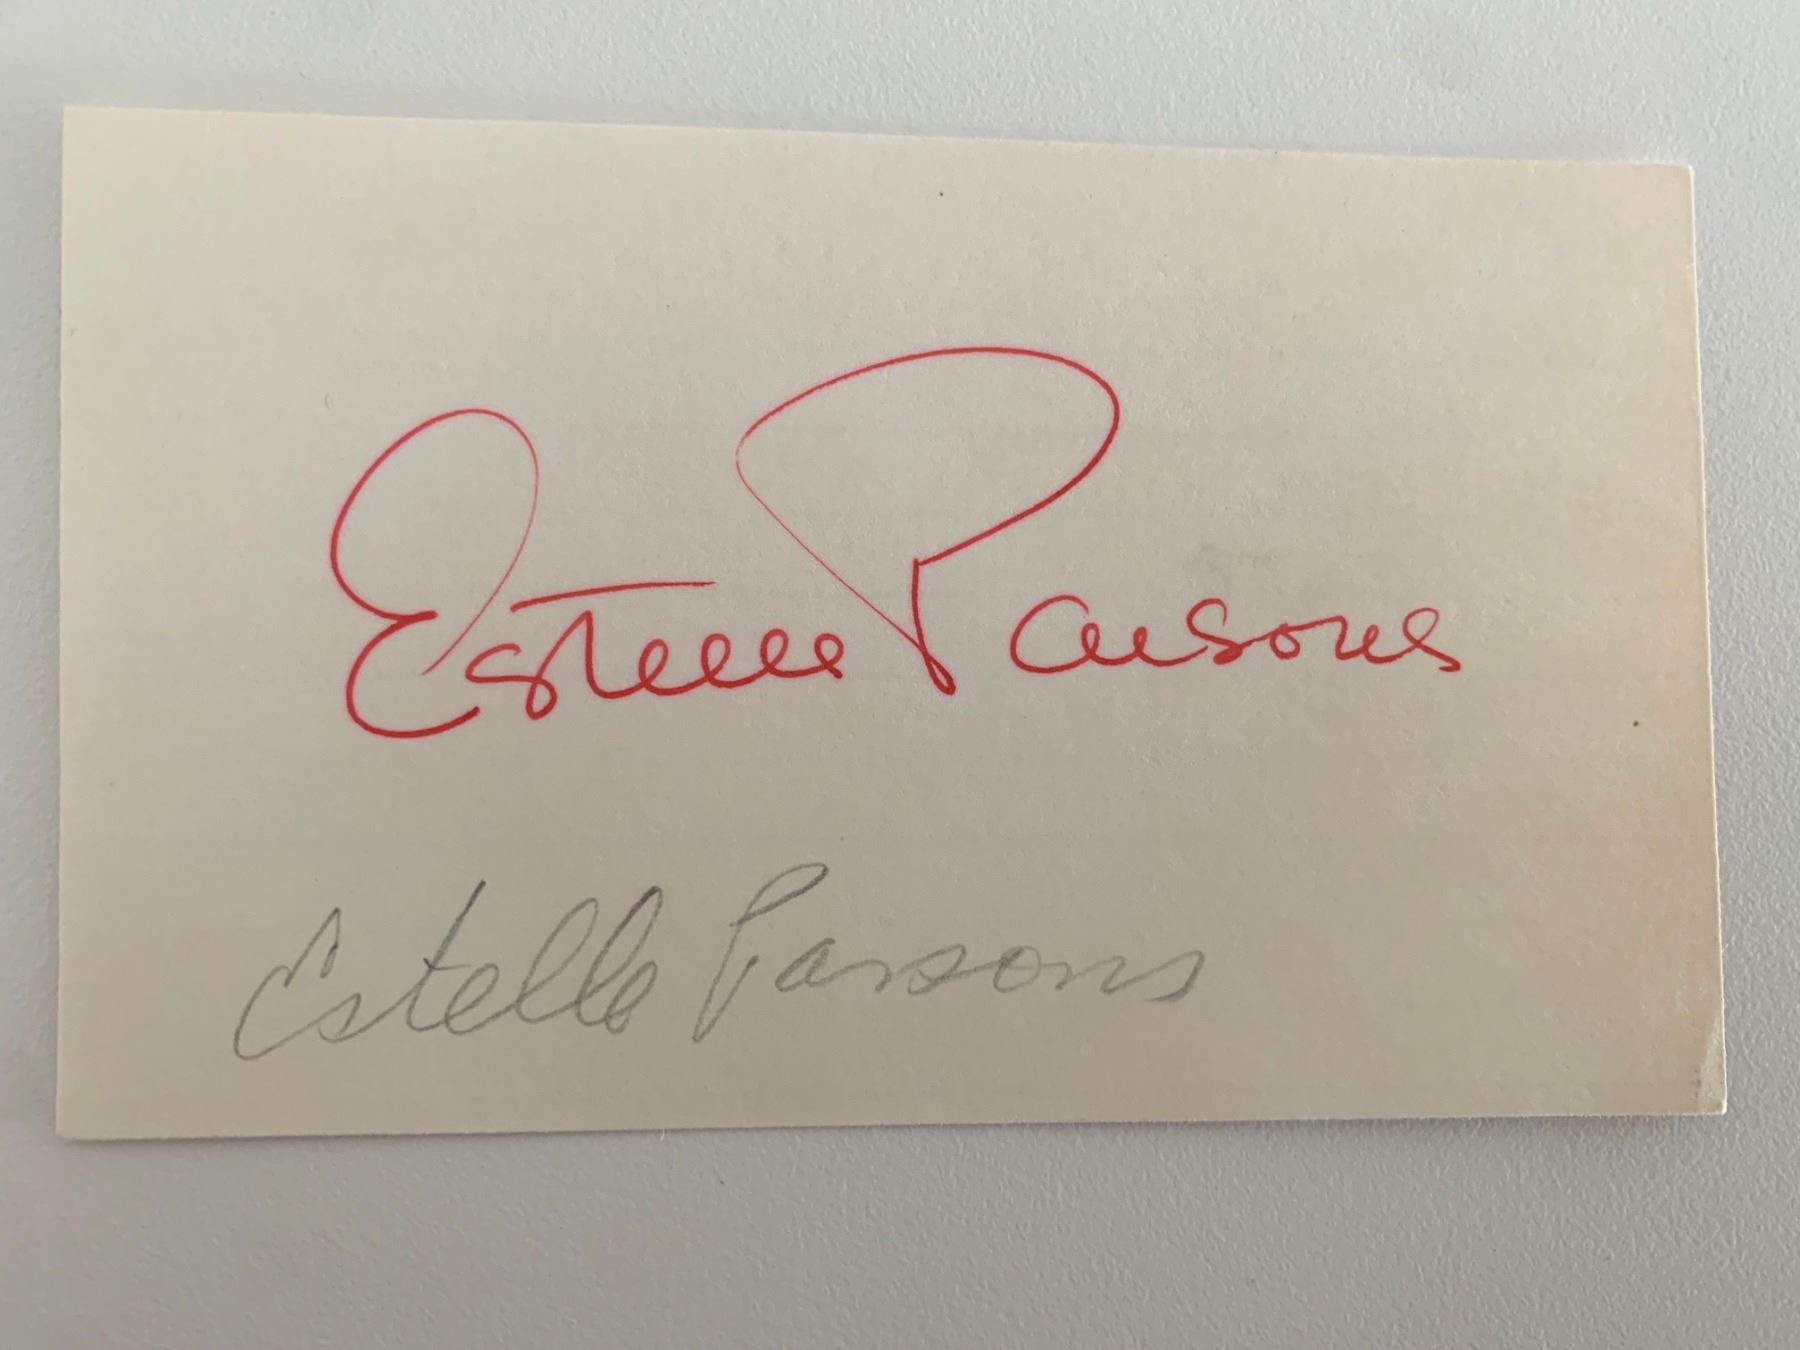 Estelle Parsons
Estelle Parsons